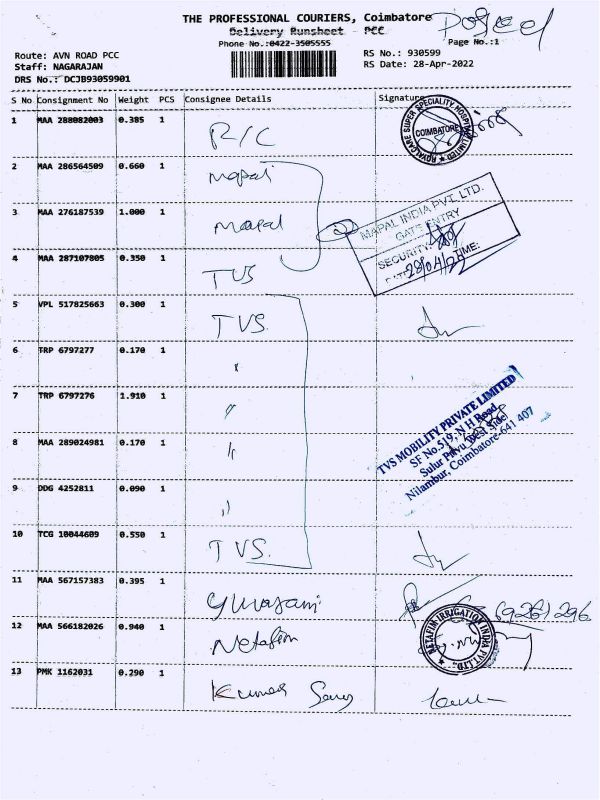 THE PROFESSIONAL COURIERS, Coimbatore
Delivery Runsheet - PCC
Phone No.:0422-3505555
Page No.:1
Route: AVN ROAD PCC
Staff: NAGARAJAN
DRS No.: DCJB93059901
RS No.: 930599
RS Date: 28-Apr-2022
S No Consignment No Weight PCS Consignee Details Signature
1 MAA 288082003 0.385 1 R/C
ROYALCARE SUPER SPECIALITY HOSPITAL LIMITED
COIMBATORE
2 MAA 286564509 0.660 1 Mapal
3 MAA 276187539 1.000 1 Mapal
MAPAL INDIA PVT. LTD.
GATE ENTRY
SECURITY:
DATE: 28/04/22 TIME:
4 MAA 287107805 0.350 1 TVS
5 VPL 517825663 0.300 1 TVS.
6 TRP 6797277 0.170 1 "
7 TRP 6797276 1.910 1 "
8 MAA 289024981 0.170 1 "
TVS MOBILITY PRIVATE LIMITED
SF No.519, N H Road,
Sulur Privu West Side
Nilambur, Coimbatore-641 407
9 DDG 4252811 0.090 1 "
10 TCG 10044609 0.550 1 TVS.
11 MAA 567157383 0.395 1
12 MAA 566182026 0.940 1 Netafim
NETAFIM IRRIGATION INDIA PVT. LTD.,
13 PMK 1162031 0.290 1 Kumar